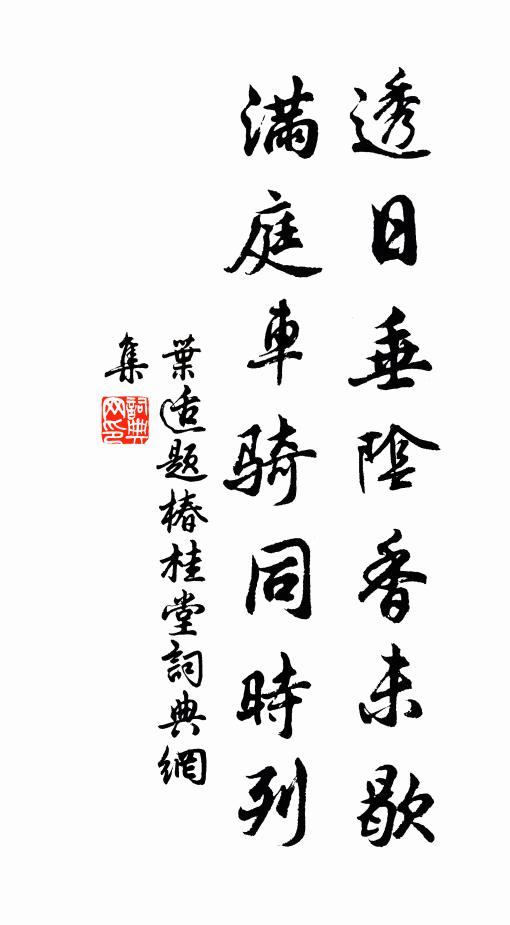 透日垂陰香未歇
滿庭車騎同時列
葉适題椿桂堂詞典網
集
詞典網印